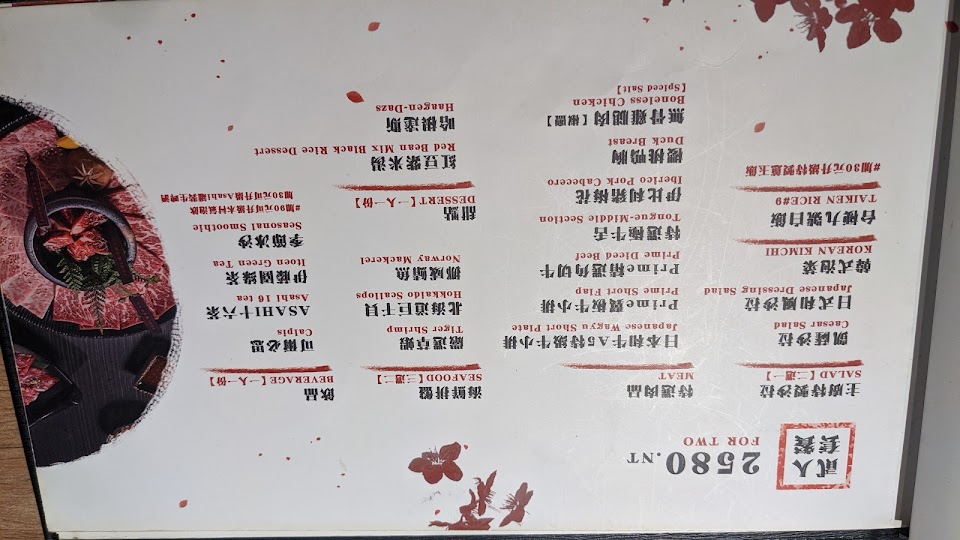 貳人
套餐
2580.NT
FOR TWO
主廚特製沙拉
SALAD【二選一】
凱薩沙拉
Caesar Salad
日式和風沙拉
Japanese Dressing Salad
韓式泡菜
KOREAN KIMCHI
台梗九號白飯
TAIKEN RICE#9
#加30元升級特製蔥玉飯
特選肉品
MEAT
日本和牛A5特級牛小排
Japanese Wagyu Short Plate
Prime翼板牛小排
Prime Short Flap
Prime精選角切牛
Prime Diced Beef
特選極牛舌
Tongue-Middle Section
伊比利豬梅花
Iberico Pork Cabecero
櫻桃鴨胸
Duck Breast
無骨雞腿肉【椒鹽】
Boneless Chicken
【Spiced Salt】
海鮮拼盤
SEAFOOD【三選二】
嚴選草蝦
Tiger Shrimp
北海道巨干貝
Hokkaido Scallops
挪威鯖魚
Norway Mackerel
甜點
DESSERT【一人一份】
紅豆紫米湯
Red Bean Mix Black Rice Dessert
哈根達斯
Haagen-Dazs
飲品
BEVERAGE【一人一份】
可爾必思
Calpis
ASAHI十六茶
Asahi 16 tea
伊藤園綠茶
Itoen Green Tea
季節冰沙
Seasonal Smoothie
#加90元可升級水村氣泡飲
加30元可升級Asahi罐裝生啤酒